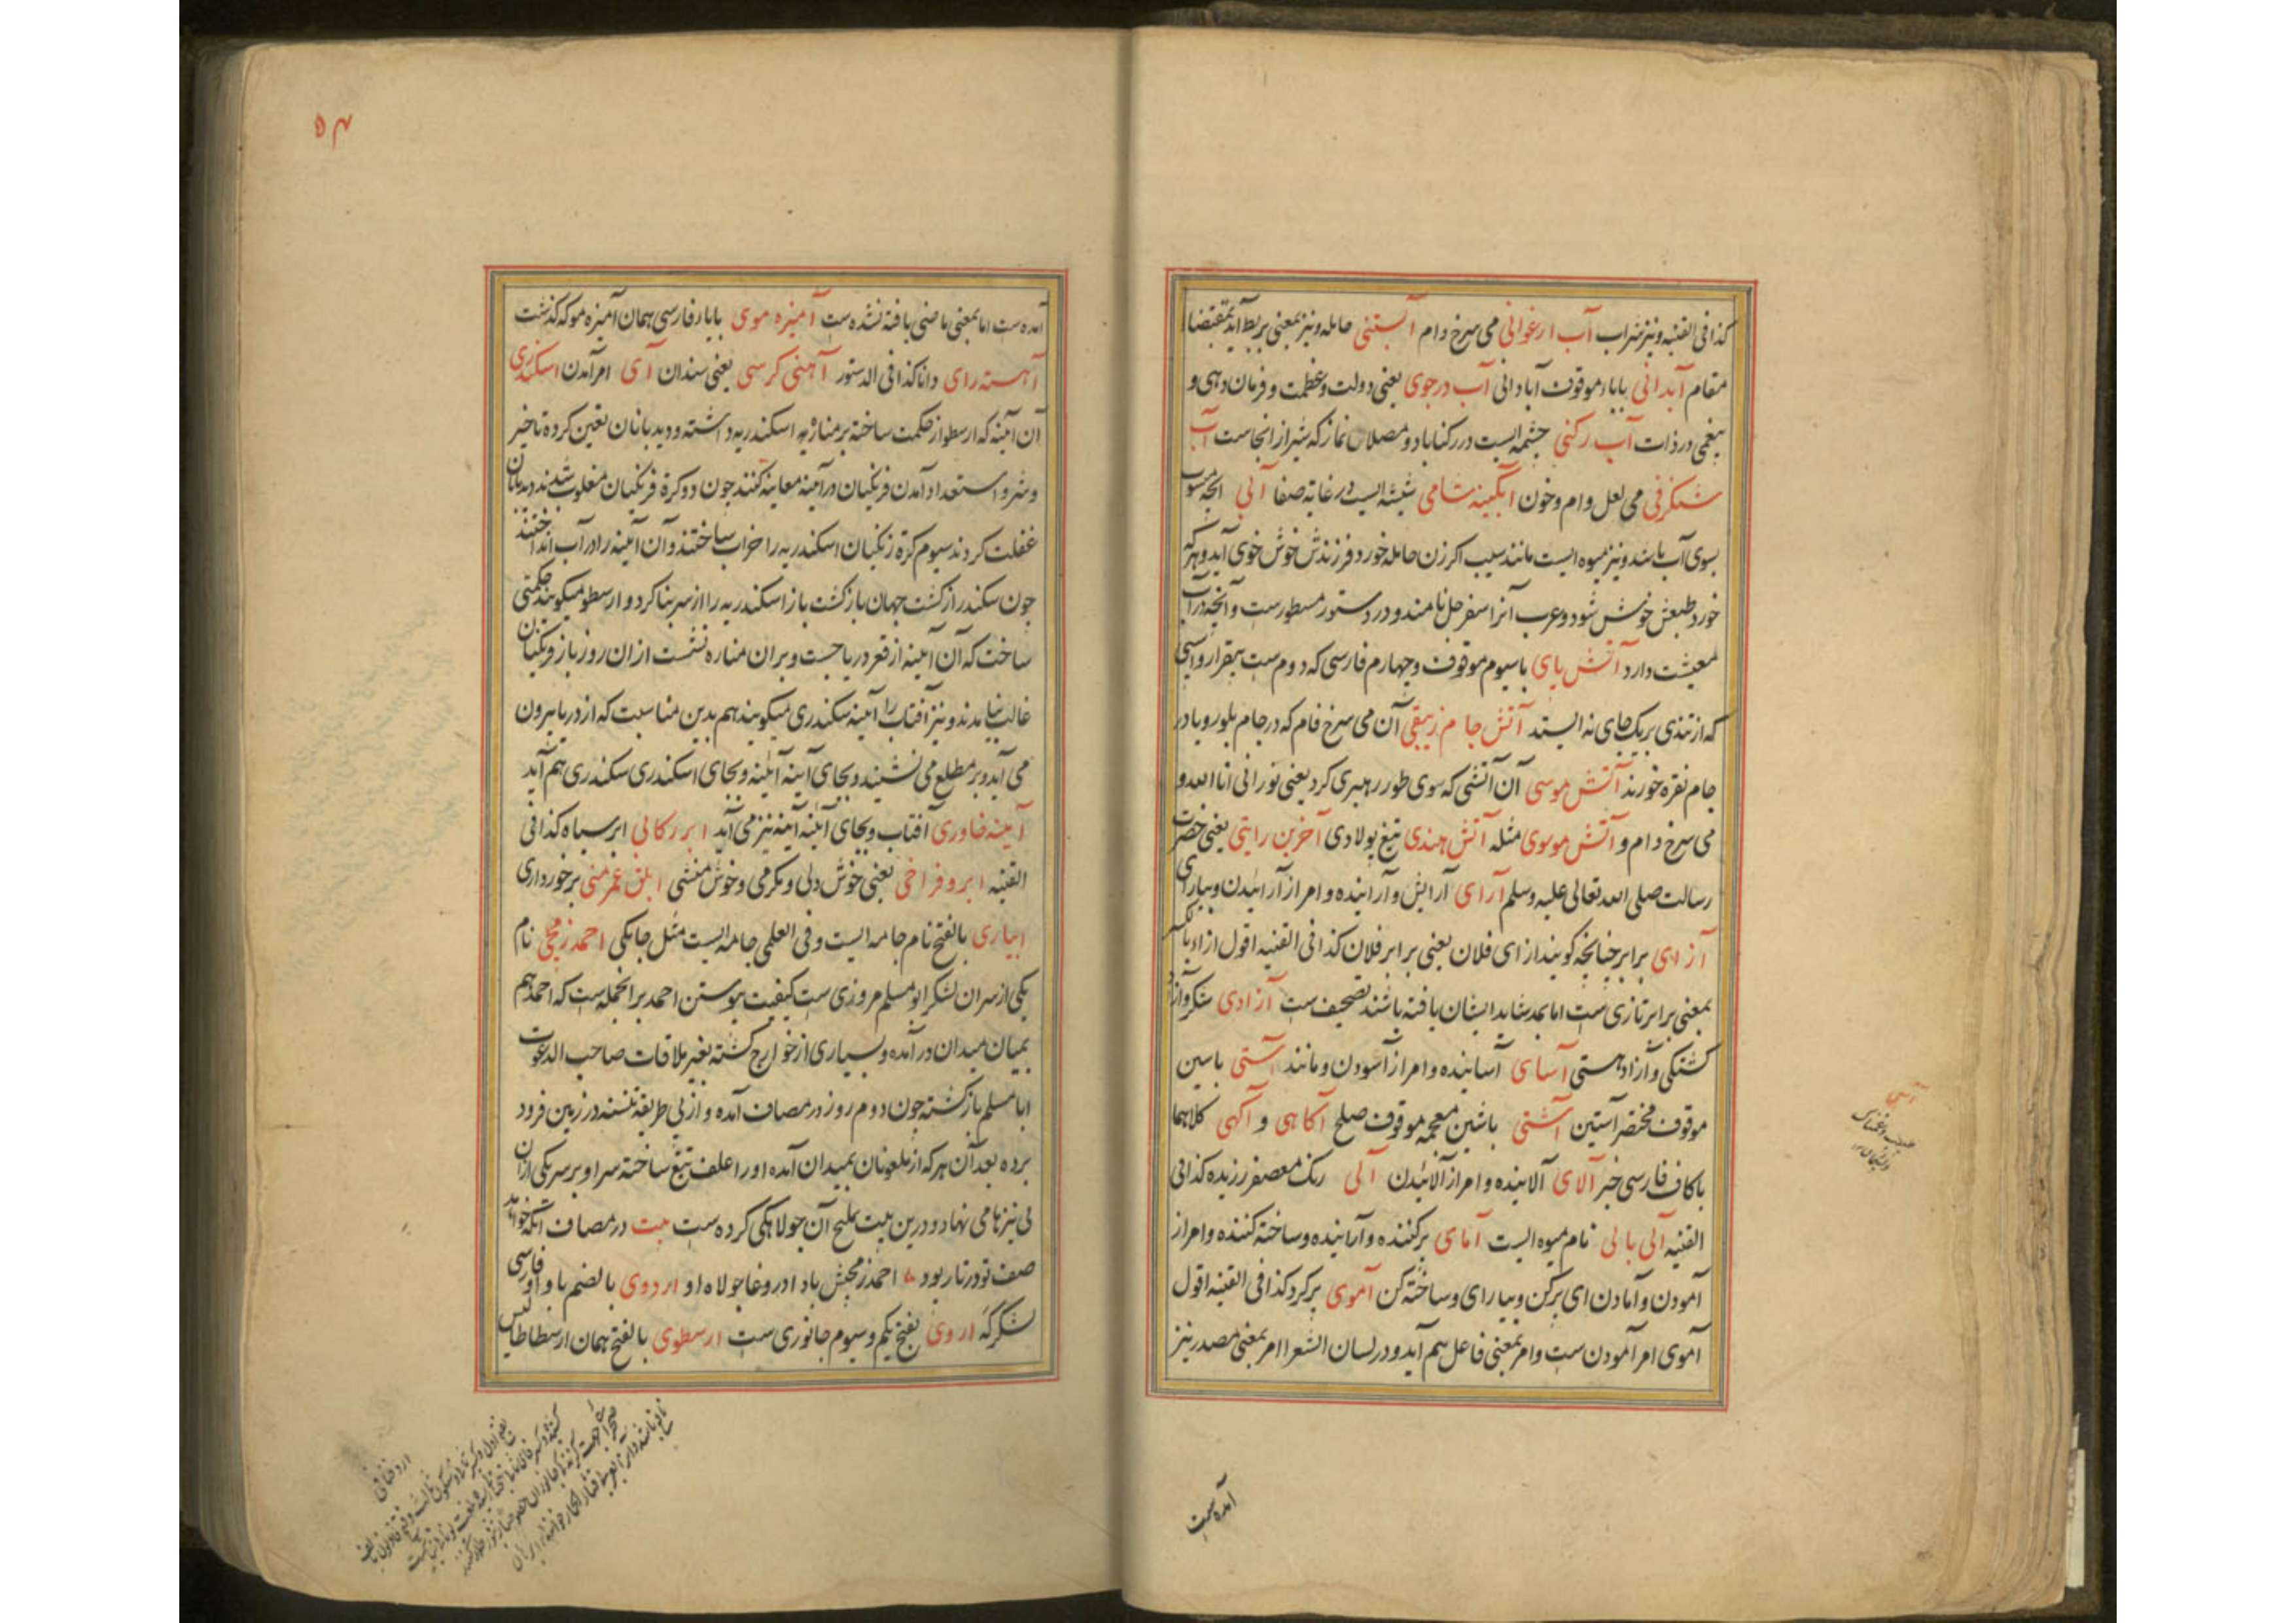 کذا فی القنیه و نیز شراب آب ارغوانی می سرخ دام آبستنی حامله و نیز بمعنی بربط آید بمقتضا
مقام آبدانی با باء موقوف آبادانی آب در جوی یعنی دولت و عظمت و فرمان دهی و
بیغمی در ذات آب رکنی چشمه ایست در رکناباد و مصلاء نماز که شیراز انجاست آب
شنگرفی می لعل وام و خون آبگینه شامی شیشه ایست در غایة صفا آبی انچه منسوب
بسوی آب باشد و نیز میوه ایست مانند سیب اکر زن حامله خورد فرزندش خوش خوی آید و هرکه
خورد طبعش خوش شود و عرب آنرا سفرجل نامند و در دستور مسطورست و آنچه در آب
معیشت دارد آتش پای با سیوم موقوف و چهارم فارسی که دوم ست بیقرار و اسپی
که از تندی بریک جای نه ایستد آتش جام زیبقی آن می سرخ فام که در جام بلور و یا در
جام نقره خورند آتش موسی آن آتشی که سوی طور رهبری کرد یعنی نورانی انا الله و
می سرخ دام و آتش موسوی مثله آتش هندی تیغ پولادی آخرین رایتی یعنی حضرت
رسالت صلی الله تعالی علیه وسلم آرای آرایش و آراینده و امر از آرائیدن و بیارای
آزای برابر چنانچه کویند ازای فلان یعنی برابر فلان کذا فی القنیه اقول ازاء بالکسر
بمعنی برابر تازی ست اما بمد شاید ایشان یافته باشند تصحیف ست آزادی شکر و آزاد
کشتکی و آزاد هستی آسای آساینده و امر از آسودن و مانند آستی باسین
موقوف مختصر آستین آشتی باشین معجمه موقوف صلح آکاهی و آکهی کلاهما
باکاف فارسی خبر آلای آلاینده و امر از آلائیدن آلی رنک معصفر رزیده کذا فی
القنیه آلی بالی نام میوه ایست آمای پرکننده و آراینده و ساخته کننده و امر از
آمودن و آمادن ای پرکن و بیارای و ساخته کن آموی پرکرد کذا فی القنیه اقول
آموی امر آمودن ست و امر بمعنی فاعل هم آید و در لسان الشعرا امر بمعنی مصدر نیز
آمده ست
۵۴
آمده ست اما بمعنی ماضی یافته نشده ست آمیزه موی با یاء فارسی همان آمیزه مو که کذشت
آهسته رای دانا کذا فی الدستور آهنی کرسی یعنی سندان آی امر آمدن اسکندری
آن آینه که ارسطو از حکمت ساخته بر مناره اسکندریه داشته و دیدبانان تعین کرده تا خیر
و شر و استعداد آمدن فرنکیان در آینه معاینه کنند چون دو کرة فرنکیان مغلوب شدند دیدبانان
غفلت کردند سیوم کرة زنکیان اسکندریه را خراب ساختند و آن آینه را در آب انداختند
چون سکندر از کشت جهان بازکشت باز اسکندریه را از سر بنا کرد و ارسطو میکویند حکمتی
ساخت که آن آینه از قعر دریا جست و بران مناره نشست ازان روز باز فرنکیان
غالب نیامدند و نیز آفتاب را آینه سکندری میکویند هم بدین مناسبت که از دریا بیرون
می آید و بر مطلع می نشیند و بجای آینه آئینه و بجای اسکندری سکندری هم آید
آینه خاوری آفتاب و بجای آئینه آینه نیز می آید ابر رکابی ابر سیاه کذا فی
القنیه ابرو فراخی یعنی خوش دلی و مکرمی و خوش منشی ابلق عمر منی برخورداری
ابیاری بالفتح نام جامه ایست و فی العلمی جامه ایست مثل جابکی احمد زمجی نام
یکی از سران لشکر ابومسلم مروزی ست کیفیت پیوستن احمد بر انجمله ست که احمد هم
بمیان میدان در آمده و بسیاری از خوارج کشته بغیر ملاقات صاحب الدعوت
ابا مسلم بازکشته چون دوم روز در مصاف آمده و از پی طریقه نشسته در زمین فرود
برده بعد آن هر که از ملعونان بمیدان آمده اورا علف تیغ ساخته سر او بر سر یکی ازان
نی نیزها می نهاد و درین بیت تلمیح آن جولاهکی کرده ست بیت در مصاف آنکه خواند
صف تو در تار پود احمد زمجیش باد در وغا جولاه او اردوی بالضم با واو فارسی
لشکرکه اروی بفتح یکم و سیوم جانوری ست ارسطوی بالفتح همان ارسطاطالیس